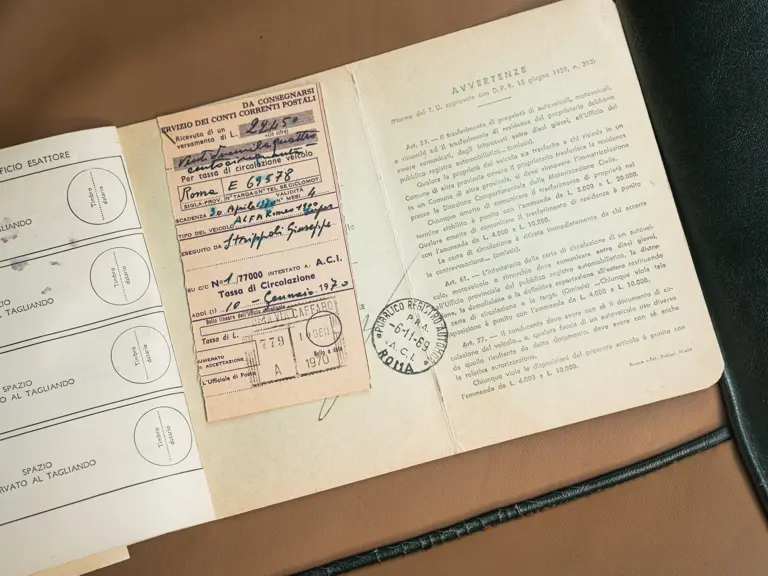 FICIO ESATTORE
Timbro
datario
TAGLIANDO
Timbro
datario
TAGLIANDO
Timbro
datario
SPAZIO
RVATO AL TAGLIANDO
Timbro
datario
SPAZIO
RVATO AL TAGLIANDO
DA CONSEGNARSI
ERVIZIO DEI CONTI CORRENTI POSTALI
Ricevuta di un
versamento di L. 22450
(in cifre)
Per tassa di circolazione veicolo
Roma E 69578
SIGLA-PROV. N° TARGA O N° TEL. SE CICLOMOT.
SCADENZA 30 Aprile 1970 VALIDITÀ N° MESI 4
TIPO DEL VEICOLO ALFA Romeo
ESEGUITO DA Strippoli Giuseppe
SU C/C N° 1/77000 INTESTATO A: A.C.I.
Tassa di Circolazione
ADDÌ (1) 10 - Gennaio 1970
Bollo lineare dell'Ufficio
ROMA VIA CAFFARO
Tassa di L.
779
A
GEN
1970
NUMERATO
DI ACCETTAZIONE
L'Ufficiale di Posta
Bollo a data
PUBBLICO REGISTRO AUTOMOB
P.R.A.
-6-11-69
A.C.I.
ROMA
AVVERTENZE
(Norme del T. U. approvato con D.P.R. 15 giugno 1959, n. 393)
Art. 59. — Il trasferimento di proprietà di autoveicoli, motoveicoli,
e rimorchi ed il trasferimento di residenza del proprietario debbono
essere comunicati, dagli interessati entro dieci giorni, all'Ufficio del
pubblico registro automobilistico... (omissis)
Qualora la proprietà del veicolo sia trasferita a chi risieda in un
Comune di altra provincia ovvero il proprietario trasferisca la residenza
in un Comune di altra provincia, si deve rinnovare l'immatricolazione
presso la Direzione Compartimentale della Motorizzazione Civile.
Chiunque omette di comunicare il trasferimento di proprietà nel
termine stabilito è punito con l'ammenda da L. 5.000 a L. 20.000.
Qualora ometta di comunicare il trasferimento di residenza è punito
con l'ammenda da L. 4.000 a L. 10.000.
La carta di circolazione è ritirata immediatamente da chi accerta
la contravvenzione... (omissis).
Art. 61. — L'intestatario della carta di circolazione di un autovei-
colo, motoveicolo o rimorchio deve comunicare entro dieci giorni,
all'Ufficio provinciale del pubblico registro automobilistico, la distru-
zione, la demolizione o la definitiva esportazione all'estero restituendo
la carta di circolazione e la targa. (Omissis)... Chiunque viola tale
disposizione è punito con l'ammenda da L. 4.000 a L. 10.000.
Art. 77. — Il conducente deve avere con sé il documento di cir-
colazione del veicolo... e, qualora faccia di un autoveicolo uso diverso
da quello risultante da detto documento, deve avere con sé anche
la relativa autorizzazione.
Chiunque viola le disposizioni del presente articolo è punito con
l'ammenda da L. 4.000 a L. 10.000.